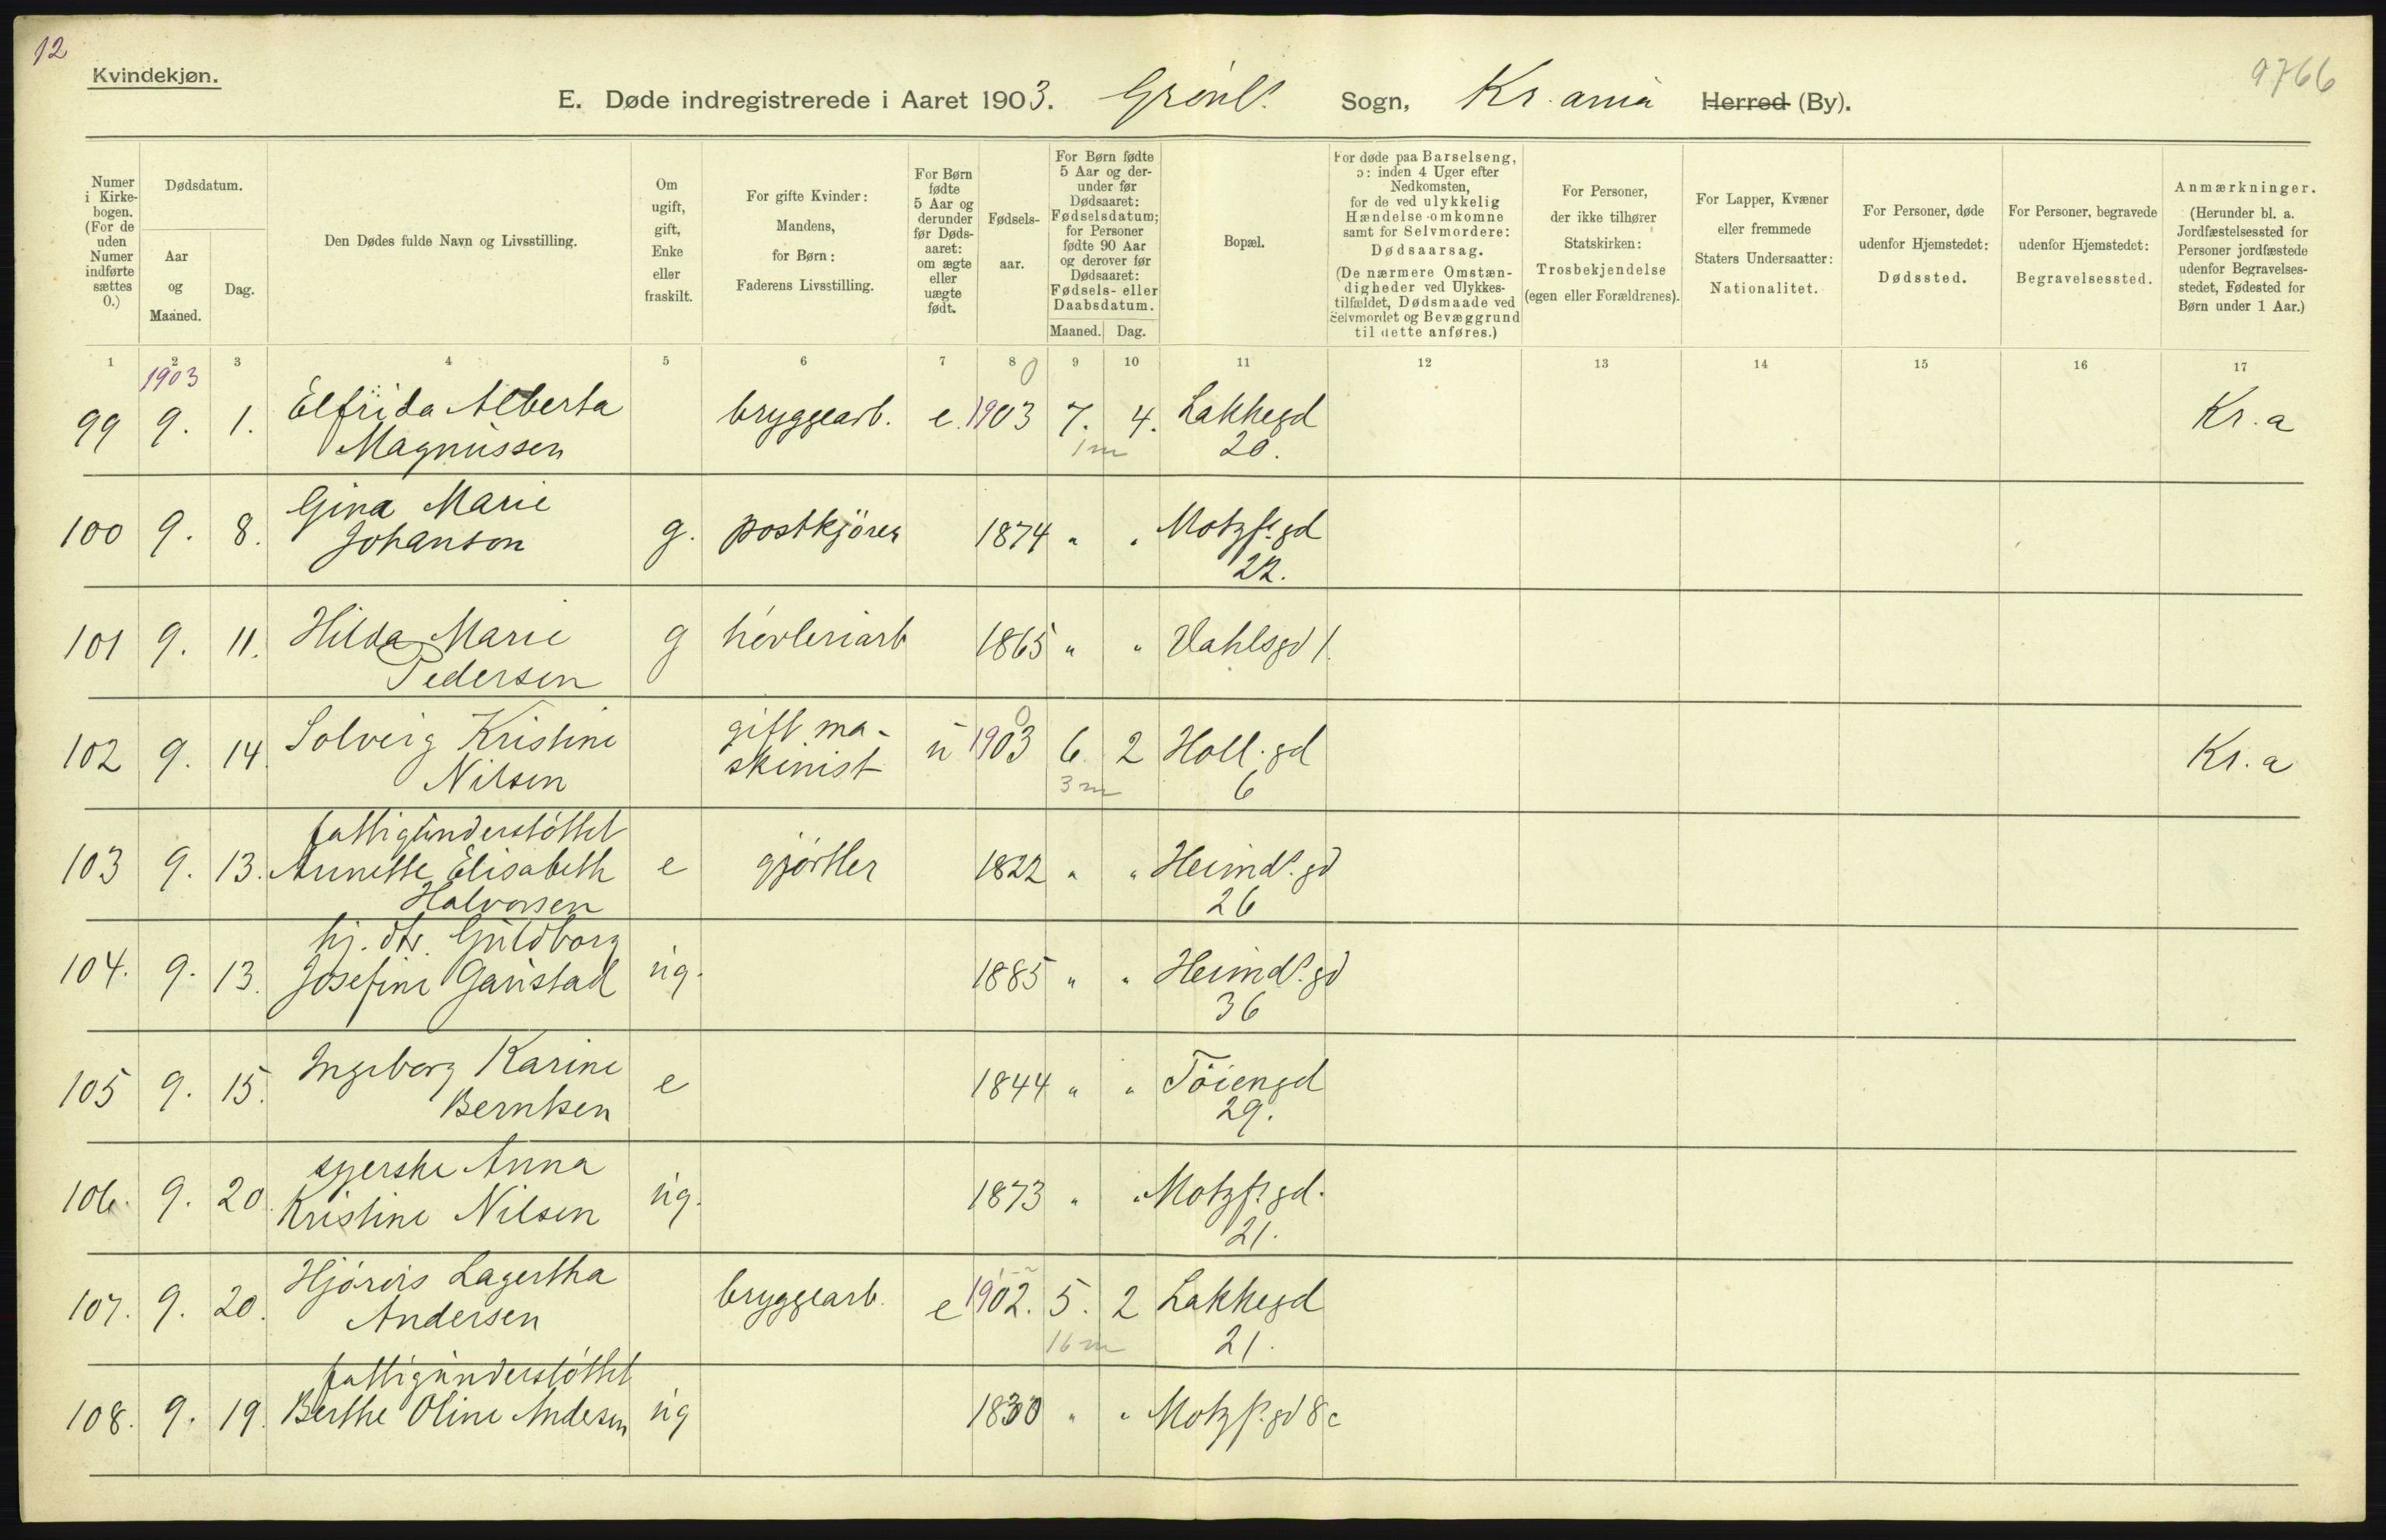 12
Kvindekjøn.
9766
E. Døde indregistrerede i Aaret 1903. Grønl. Sogn, Kr.ania Herred (By).
Numer i Kirkebogen. (For de uden Numer indførte sættes 0.)
Dødsdatum.
Aar og Maaned.
Dag.
Den Dødes fulde Navn og Livsstilling.
Om ugift, gift, Enke eller fraskilt.
For gifte Kvinder: Mandens, for Børn: Faderens Livsstilling.
For Børn fødte 5 Aar og derunder før Dødsaaret: om ægte eller uægte født.
Fødselsaar.
For Børn fødte 5 Aar og derunder før Dødsaaret: Fødselsdatum; for Personer fødte 90 Aar og derover før Dødsaaret: Fødsels- eller Daabsdatum.
Maaned. Dag.
Bopæl.
For døde paa Barselseng, ɔ: inden 4 Uger efter Nedkomsten, for de ved ulykkelig Hændelse omkomne samt for Selvmordere: Dødsaarsag. (De nærmere Omstændigheder ved Ulykkestilfældet, Dødsmaade ved Selvmordet og Bevæggrund til dette anføres.)
For Personer, der ikke tilhører Statskirken: Trosbekjendelse (egen eller Forældrenes).
For Lapper, Kvæner eller fremmede Staters Undersaatter: Nationalitet.
For Personer, døde udenfor Hjemstedet: Dødssted.
For Personer, begravede udenfor Hjemstedet: Begravelsessted.
Anmærkninger. (Herunder bl. a. Jordfæstelsessted for Personer jordfæstede udenfor Begravelsesstedet, Fødested for Børn under 1 Aar.)
1 2 3 4 5 6 7 8 9 10 11 12 13 14 15 16 17
1903 0
99 9. 1. Elfrida Alberta bryggearb. e. 1903 7. 4. Lakkegd Kr.a
Magnussen 1 m 20.
100 9. 8. Gina Marie
Johanson g. postkjörer 1874 " " Motzf. gd
22.
101 9. 11. Hilda Marie g hövleriarb 1865 " " Vahlsgd 1.
Pedersen
102 9. 14. Solveig Kristine gift ma- u 1903 6. 2 Holl. gd Kr. a
Nilsen skinist 3 m 6
fattigunderstöttet
103 9. 13. Annette Elisabeth e gjörtler 1822 " " Heimd. gd
Halvorsen 26
hj. dtr. Guldborg
104. 9. 13. Josefine Gaustad ug. 1885 " " Heimd. gd
36
105 9. 15. Ingeborg Karine e 1844 " " Töiengd
Berntsen 29.
syerske Anna
106. 9. 20. Kristine Nilsen ug. 1873 " " Motzf. gd.
21.
107. 9. 20. Hjördis Lagertha bryggearb. e 1902. 5. 2 Lakkegd
Andersen 16 m 21.
fattigunderstöttet
108. 9. 19. Berthe Oline Andesen ug 1830 " " Motzf. gd 8 c